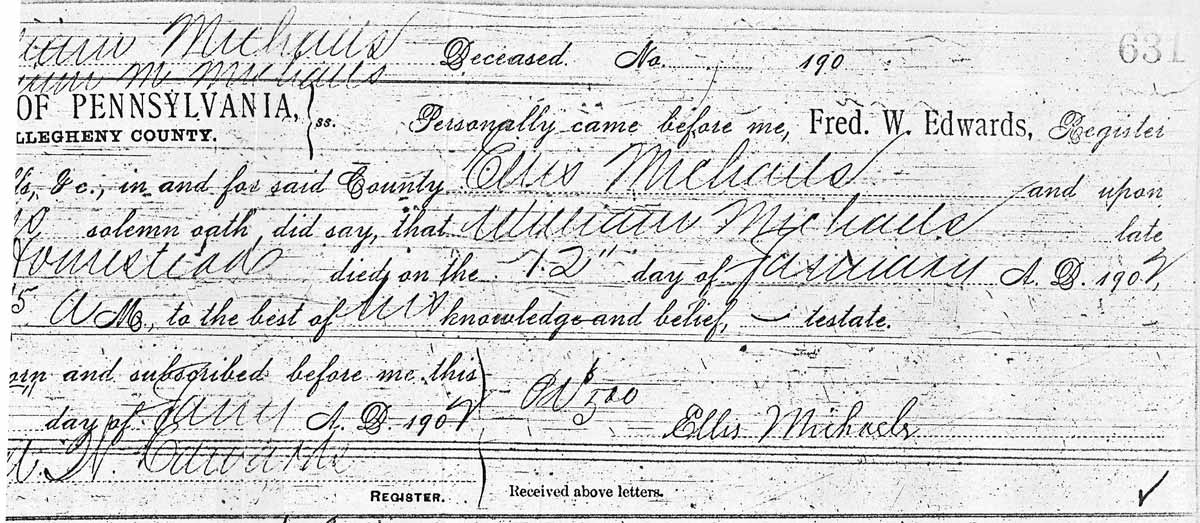 Michaels Deceased. No. 190 631
M. Michaels
OF PENNSYLVANIA,
LLEGHENY COUNTY. ss. Personally came before me, Fred. W. Edwards, Register
lls, &c., in and for said County Ellis Michaels and upon
solemn oath, did say, that William Michaels late
Homestead died on the 12" day of January A. D. 1902,
5 A M., to the best of his knowledge and belief, — testate.
orn and subscribed before me this
day of Jany A. D. 1902 Pd $5.00
Ellis Michaels
W. Edwards
REGISTER. Received above letters.